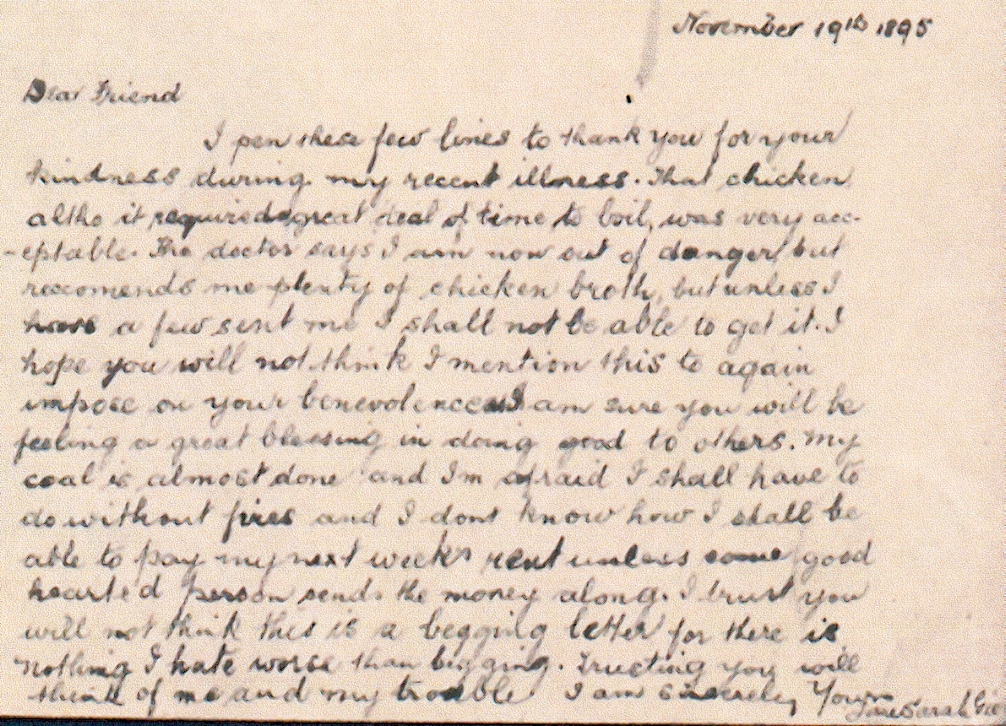 November 19th 1895
Dear Friend
I pen these few lines to thank you for your
kindness during my recent illness. That chicken
altho it required a great deal of time to boil, was very acc-
-eptable. The doctor says I am now out of danger but
reccomends me plenty of chicken broth, but unless I
have a few sent me I shall not be able to get it. I
hope you will not think I mention this to again
impose on your benevolence as I am sure you will be
feeling a great blessing in doing good to others. My
coal is almost done and I'm afraid I shall have to
do without fires and I dont know how I shall be
able to pay my next week's rent unless some good
hearted person sends the money along. I trust you
will not think this is a begging letter for there is
nothing I hate worse than begging. Trusting you will
think of me and my trouble I am sincerely Yours
Sarah